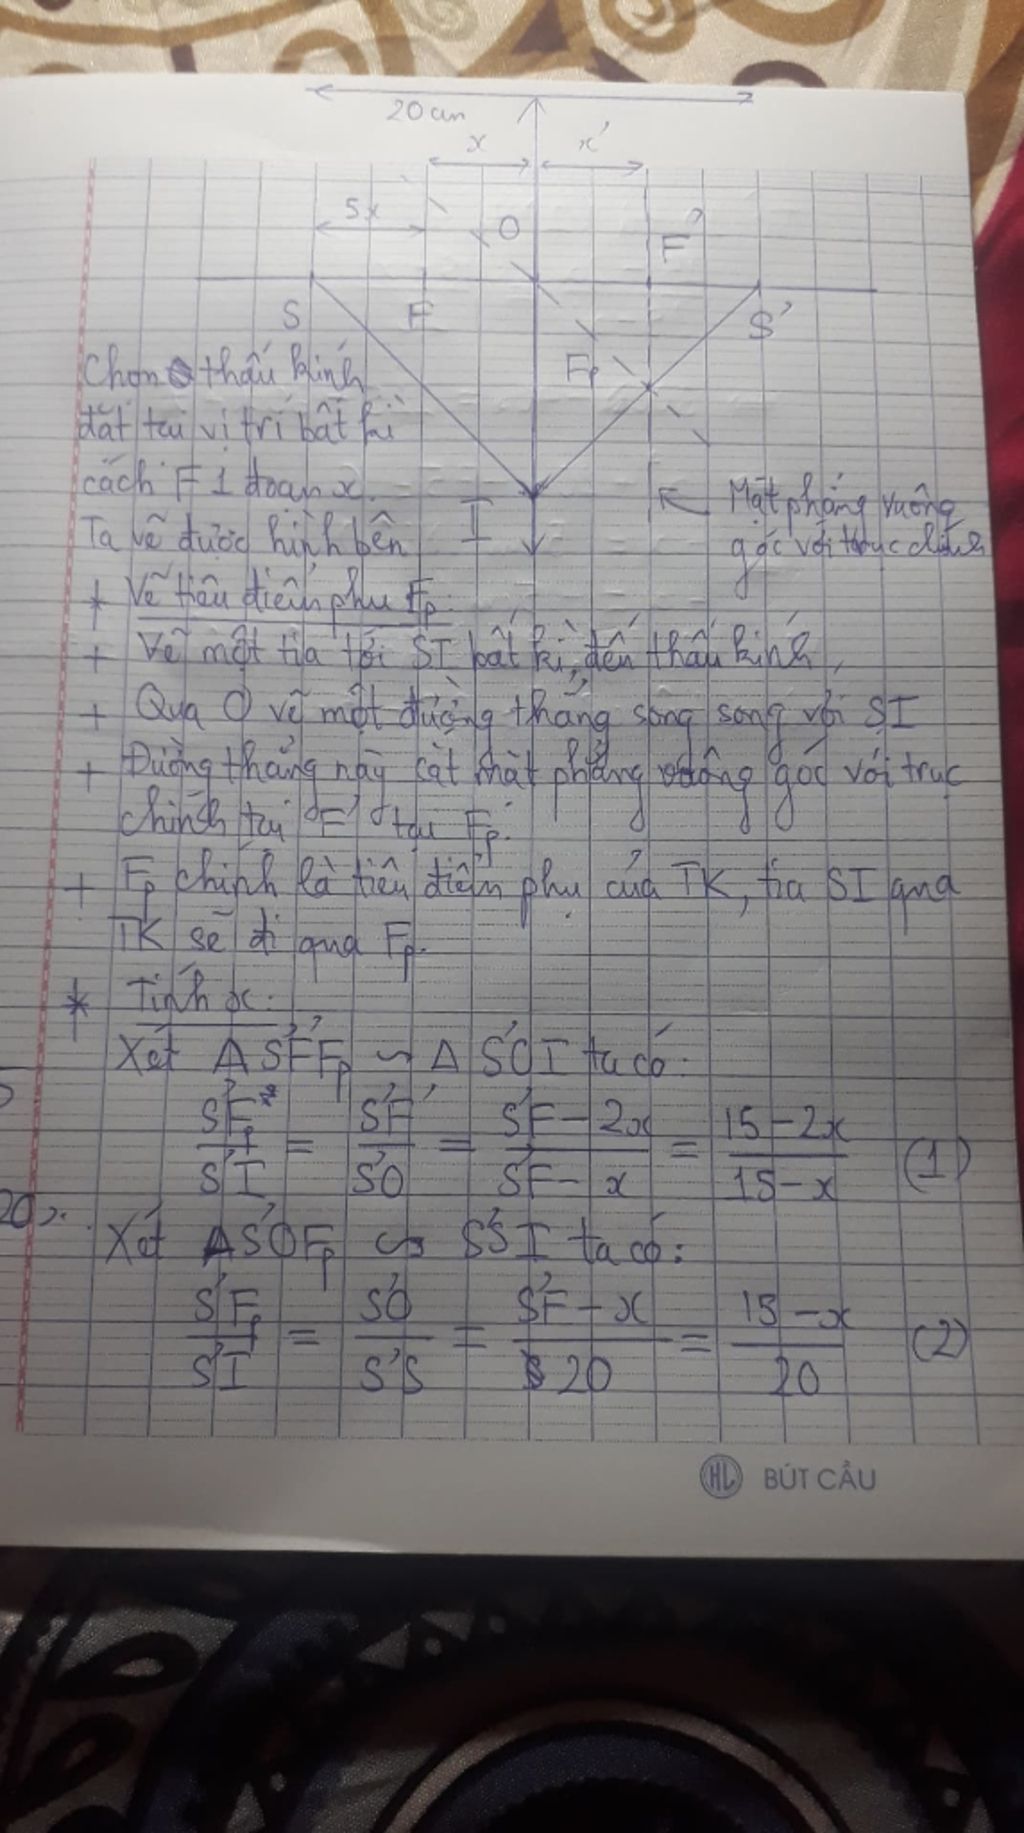 20 cm
x x'
5x
O
F'
S F S'
Fp
Chọn thấu kính
đặt tại vị trí bất kì
cách F 1 đoạn x.
Ta vẽ được hình bên
I
Mặt phẳng vuông
góc với trục chính
* Vẽ tiêu điểm phụ Fp:
+ Vẽ một tia tới SI bất kì, đến thấu kính,
+ Qua O vẽ một đường thẳng song song với SI
+ Đường thẳng này cắt mặt phẳng vuông góc với trục
chính tại F' tại Fp.
+ Fp chính là tiêu điểm phụ của TK, tia SI qua
TK sẽ đi qua Fp.
* Tính x:
Xét Δ S'F'Fp ∽ Δ S'OI ta có:
S'Fp/S'I = S'F'/S'O = (S'F - 2x)/(S'F - x) = (15 - 2x)/(15 - x) (1)
Xét ΔS'OFp ∽ S'SI ta có:
S'Fp/S'I = S'O/S'S = (S'F - x)/20 = (15 - x)/20 (2)
HL BÚT CẦU